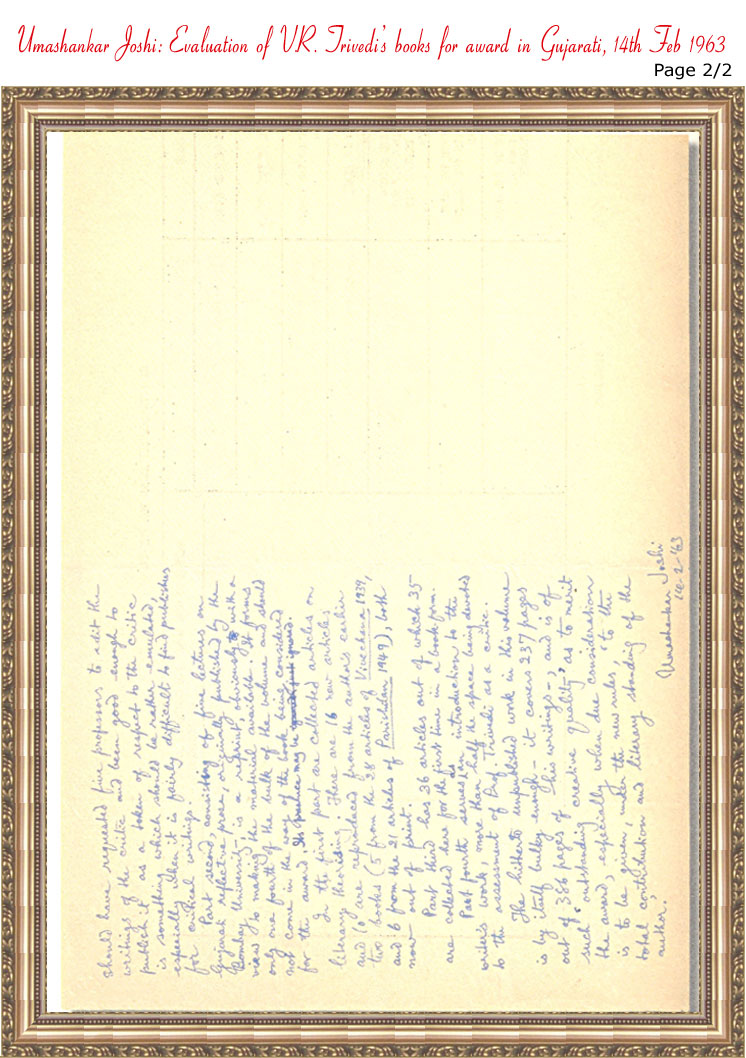 Umashankar Joshi: Evaluation of V.R. Trivedi's books for award in Gujarati, 14th Feb 1963
Page 2/2
should have requested five professors to edit the
writings of the critic and been good enough to
publish it as a token of respect to the critic
is something which should be rather emulated,
especially when it is fairly difficult to find publishers
for critical writings.
Part second consisting of five lectures on
Gujarati reflective prose, originally published by the
Bombay University is a reprint, obviously with a
view to making the material available. It forms
only one fourth of the bulk of the volume and should
not come in the way of the book being considered
for the award.
In the first part are collected articles on
literary theorising. There are 16 new articles
and 11 are reproduced from the author's earlier
two books (5 from the 28 articles of Vivechana 1939,
and 6 from the 21 articles of Parishilan 1949), both
now out of print.
Part third has 36 articles out of which 35
are collected here for the first time in a book form.
Part fourth serves as an introduction to the
writer's work, more than half the space being devoted
to the assessment of Prof. Trivedi as a critic.
The hitherto unpublished work in this volume
is by itself bulky enough - it covers 237 pages
out of 386 pages of his writings -, and is of
such outstanding creative quality as to merit
the award, especially when due consideration
is to be given, under the new rules, 'to the
total contribution and literary standing of the
author.'
Umashankar Joshi
14-2-'63